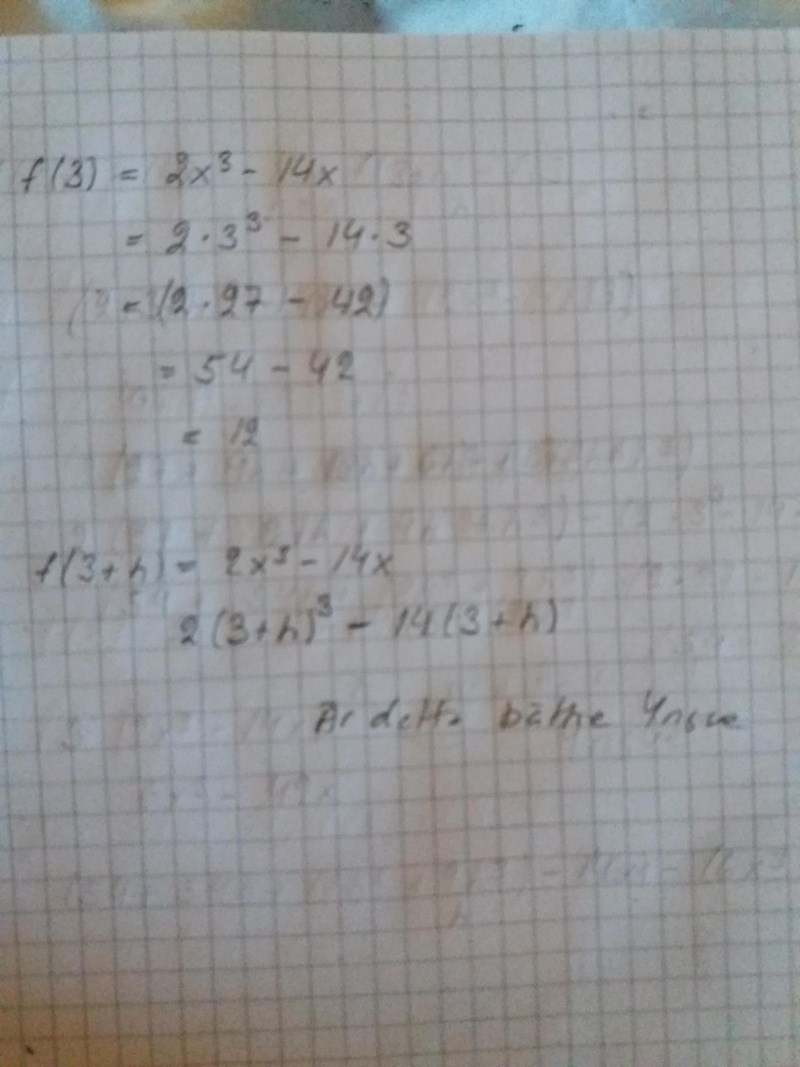 f(3) = 2x³ - 14x
= 2·3³ - 14·3
= (2·27 - 42)
= 54 - 42
= 12
f(3+h) = 2x³ - 14x
2(3+h)³ - 14(3+h)
Är detta bättre